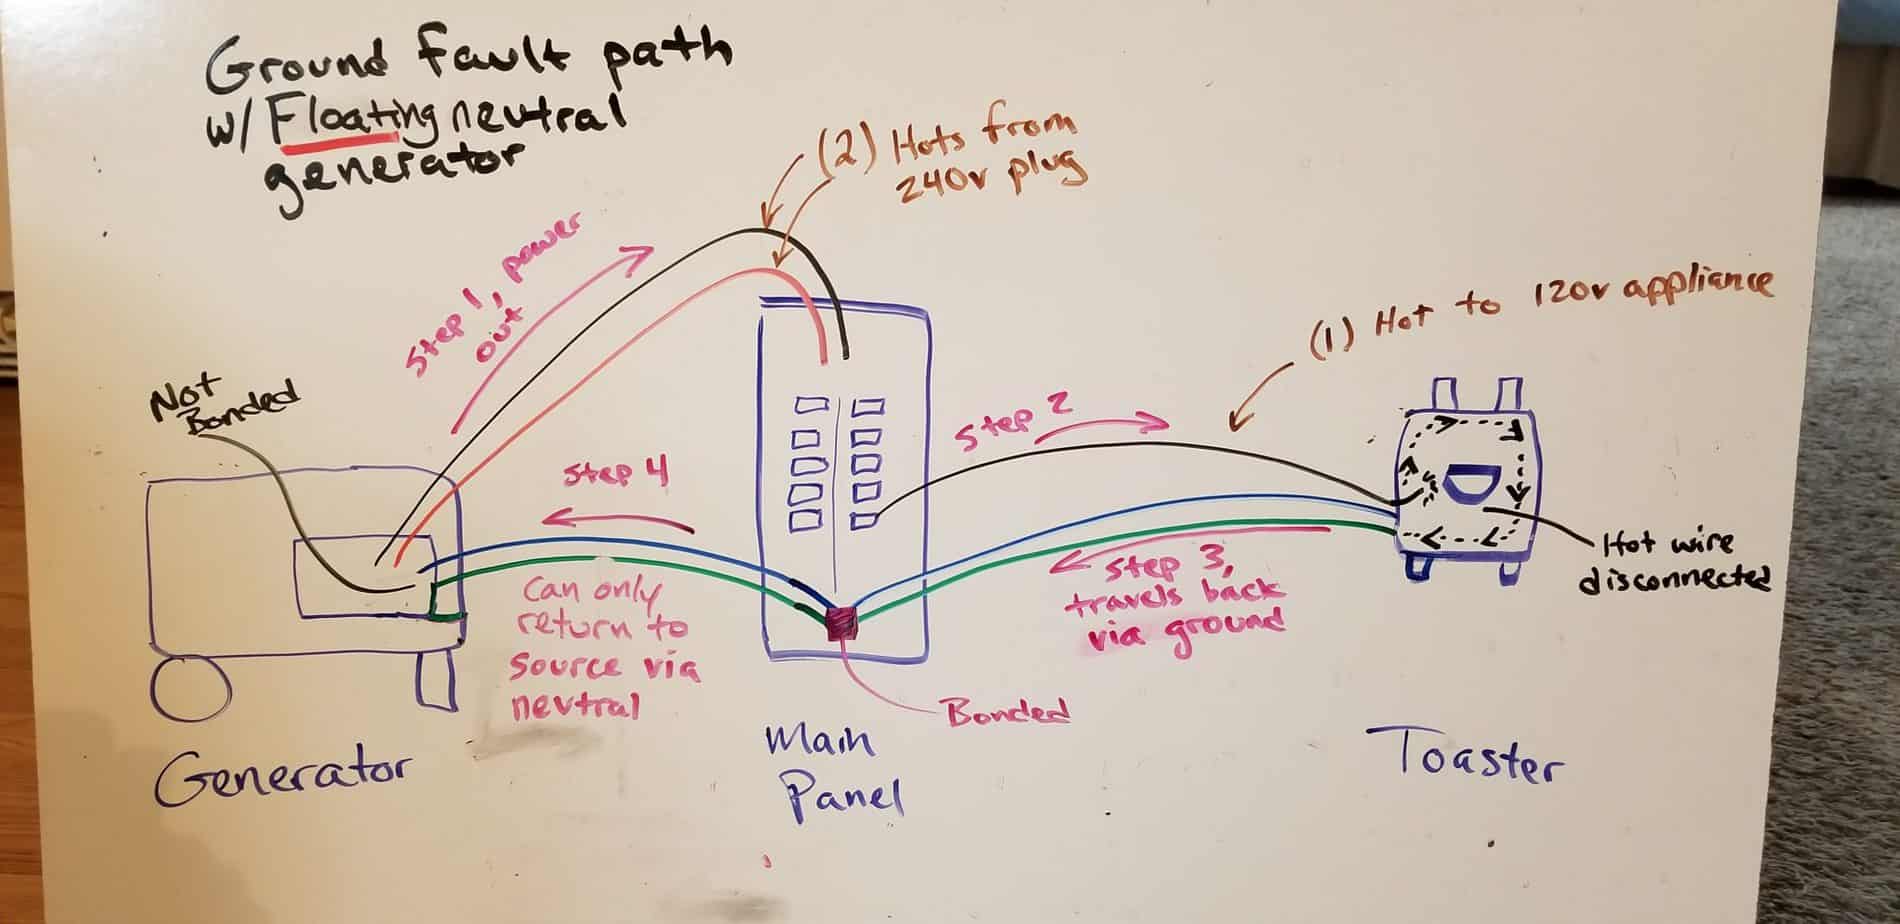 Ground fault path
w/ Floating neutral
generator
(2) Hots from
240v plug
Step 1, power
out
(1) Hot to 120v appliance
Not
Bonded
Step 2
Step 4
Hot wire
disconnected
Step 3,
travels back
via ground
Can only
return to
source via
neutral
Bonded
Generator
Main
Panel
Toaster